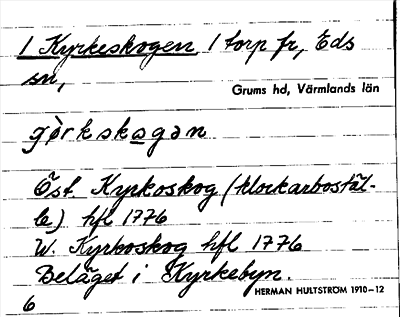 1 Kyrkeskogen, 1 torp fr, Eds
sn,
Grums hd, Värmlands län
gòrkskagən
Öst. Kyrkoskog (klockarbostäl-
le) hfl 1776
W. Kyrkoskog hfl 1776
Beläget i Kyrkebyn.
HERMAN HULTSTRÖM 1910-12
6